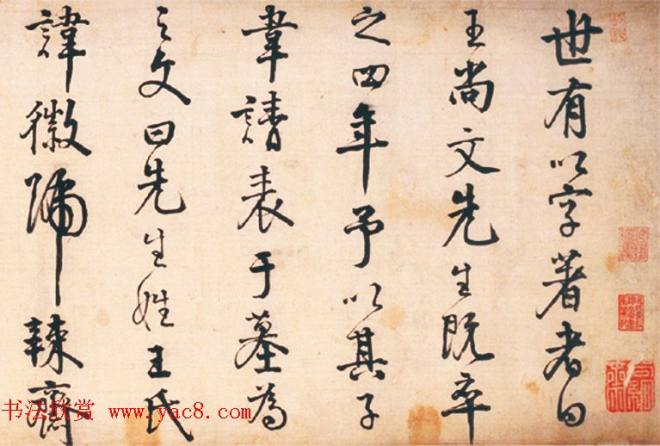 世有以字著者曰
王尚文先生既卒
之四年予以其子
韋請表于墓為
之文曰先生姓王氏
諱徽號辣齋
书法欣赏 www.yac8.com